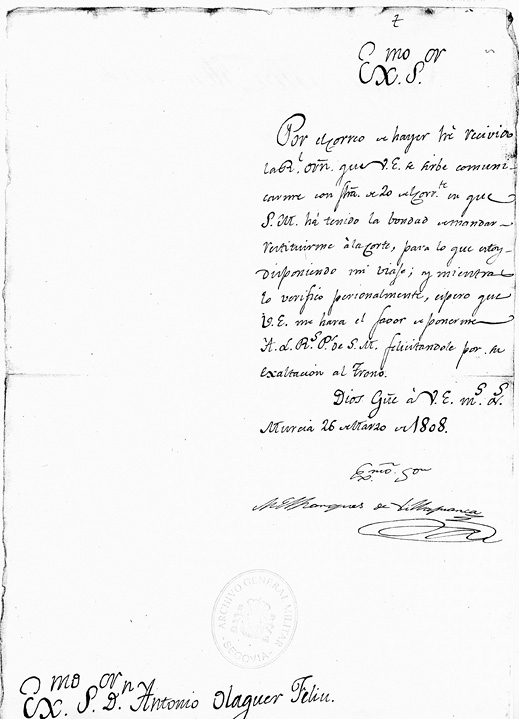 Exmo. Sor.
Por el Correo de hayer hé recivido
la Rl. Orn. que V.E. se sirbe comuni-
carme con fha. de 20 del Corrte. en que
S.M. há tenido la bondad de mandar
restituirme à la Corte, para lo que estoy
disponiendo mi viaje; y mientras
lo verifico personalmente, espero que
V.E. me hara el favor de ponerme
A.L.Rs.Ps. de S.M. felicitandole por su
exaltacion al Trono.
Dios Gue. à V.E. ms. as.
Murcia 26 de Marzo de 1808.
Exmo. Sor.
El Marques de Villafranca
ARCHIVO GENERAL MILITAR
SEGOVIA
Exmo. Sor. Dn. Antonio Olaguer Feliu.